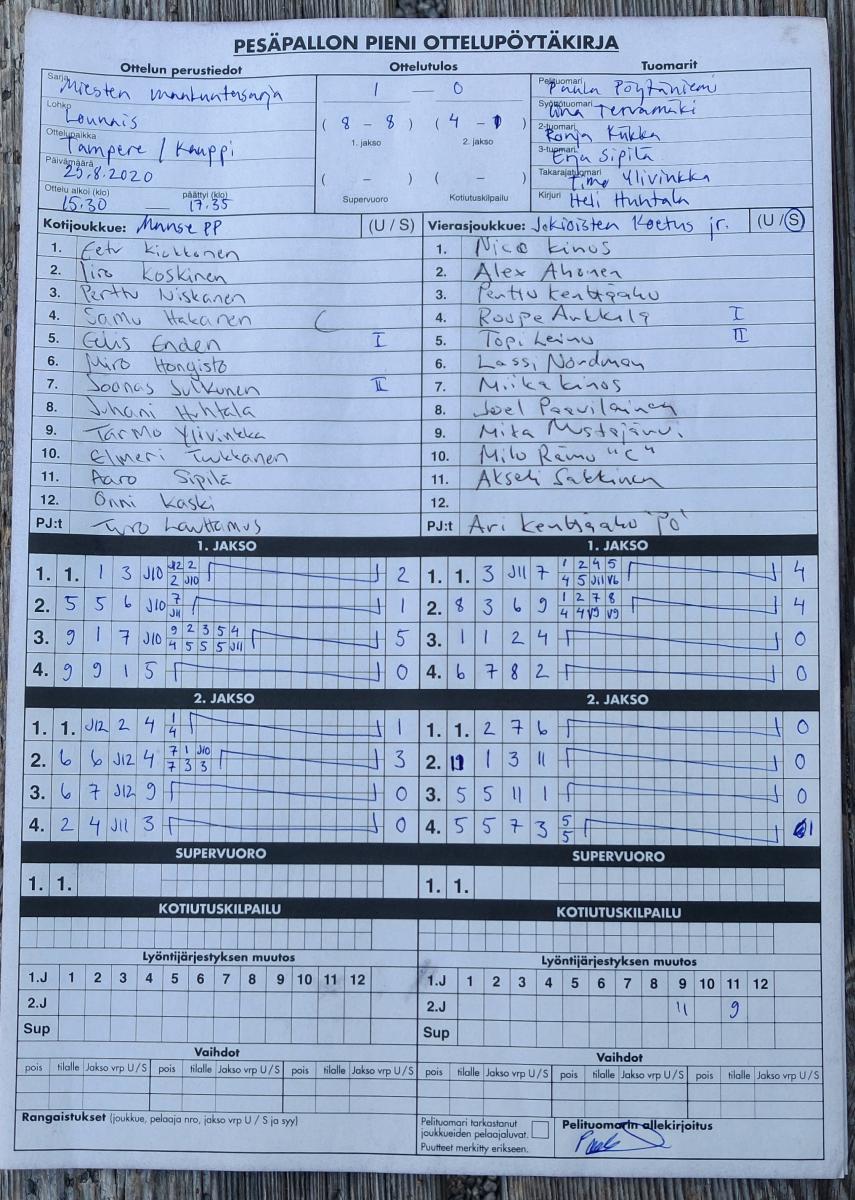 PESÄPALLON PIENI OTTELUPÖYTÄKIRJA
Ottelun perustiedot
Sarja Miesten maakuntasarja
Lohko Lounais
Ottelupaikka Tampere / Kauppi
Päivämäärä 25.8.2020
Ottelu alkoi (klo) 15.30 päättyi (klo) 17.35
Ottelutulos
1 — 0
( 8 - 8 ) ( 4 - 1 )
1. jakso 2. jakso
( - ) ( - )
Supervuoro Kotiutuskilpailu
Tuomarit
Pelituomari Paula Pöytäniemi
Syöttötuomari Tervamäki
2-tuomari Ronja Kukka
3-tuomari Erja Sipilä
Takarajatuomari Timo Ylivinkka
Kirjuri Heli Huhtala
Kotijoukkue: Manse PP (U / S)
1. Eetu
2. Iiro Koskinen
3. Perttu Niskanen
4. Samu Hakanen C
5. Eelis Enden I
6. Miro Hongisto
7. Joonas Sulkunen II
8. Juhani Huhtala
9. Tarmo Ylivinkka
10. Elmeri Tuikkanen
11. Aaro Sipilä
12. Onni Kaski
PJ:t Turo Lauttamus
Vierasjoukkue: Jokioisten Koetus jr. (U / S)
1. Nico Kinos
2. Alex Ahonen
3. Penttu Kenttäaho
4. Roope Ankkala I
5. Topi Leino II
6. Lassi Nordman
7. Miika Kinos
8. Joel Paavilainen
9. Mika Mustajärvi
10. Milo Rämö "C"
11. Akseli Sakkinen
12.
PJ:t Ari Kenttäaho "PO"
1. JAKSO
1. 1. 1 3 J10 J12 2 2
2 J10
2. 5 5 6 J10 7 1
J11
3. 9 1 7 J10 9 2 3 5 4 5
4 5 5 5 J11
4. 9 9 1 5 0
1. JAKSO
1. 1. 3 J11 7 1 2 4 5 4
4 5 J11 V6
2. 8 3 6 9 1 2 7 8 4
4 4 V9 V9
3. 1 1 2 4 0
4. 6 7 8 2 0
2. JAKSO
1. 1. J12 2 4 1 1
4
2. 6 6 J12 4 7 1 J10 3
7 3 3
3. 6 7 J12 9 0
4. 2 4 J11 3 0
2. JAKSO
1. 1. 2 7 6 0
2. 1 3 11 0
3. 5 5 11 1 0
4. 5 5 7 3 5 1
5
SUPERVUORO
1. 1.
SUPERVUORO
1. 1.
KOTIUTUSKILPAILU
KOTIUTUSKILPAILU
Lyöntijärjestyksen muutos
1.J 1 2 3 4 5 6 7 8 9 10 11 12
2.J
Sup
Lyöntijärjestyksen muutos
1.J 1 2 3 4 5 6 7 8 9 10 11 12
2.J 11 9
Sup
Vaihdot
pois tilalle Jakso vrp U / S pois tilalle Jakso vrp U / S pois tilalle Jakso vrp U / S
Vaihdot
pois tilalle Jakso vrp U / S pois tilalle Jakso vrp U / S pois tilalle Jakso vrp U / S
Rangaistukset (joukkue, pelaaja nro, jakso vrp U / S ja syy)
Pelituomari tarkastanut
joukkueiden pelaajaluvat.
Puutteet merkitty erikseen.
Pelituomarin allekirjoitus